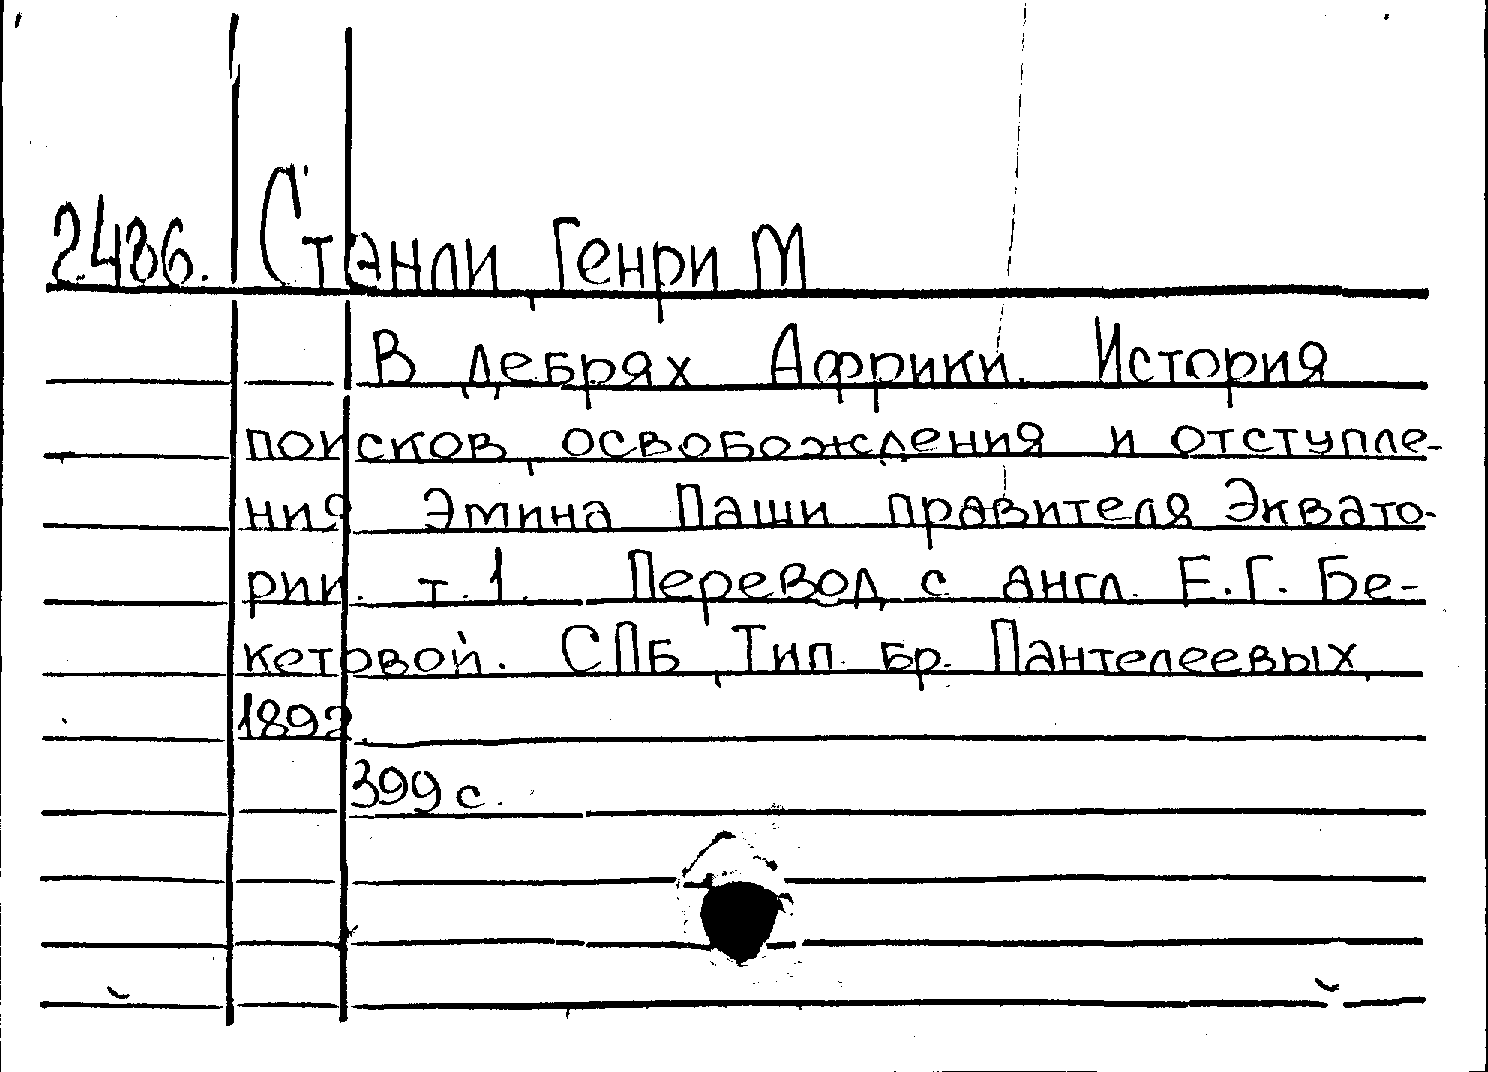 2486. Стэнли Генри М
В дебрях Африки. История
поисков, освобождения и отступле-
ния Эмина Паши правителя Эквато-
рии. т. 1. Перевод с англ. Е. Г. Бе-
кетовой. СПБ Тип. бр. Пантелеевых,
1892.
399 с.